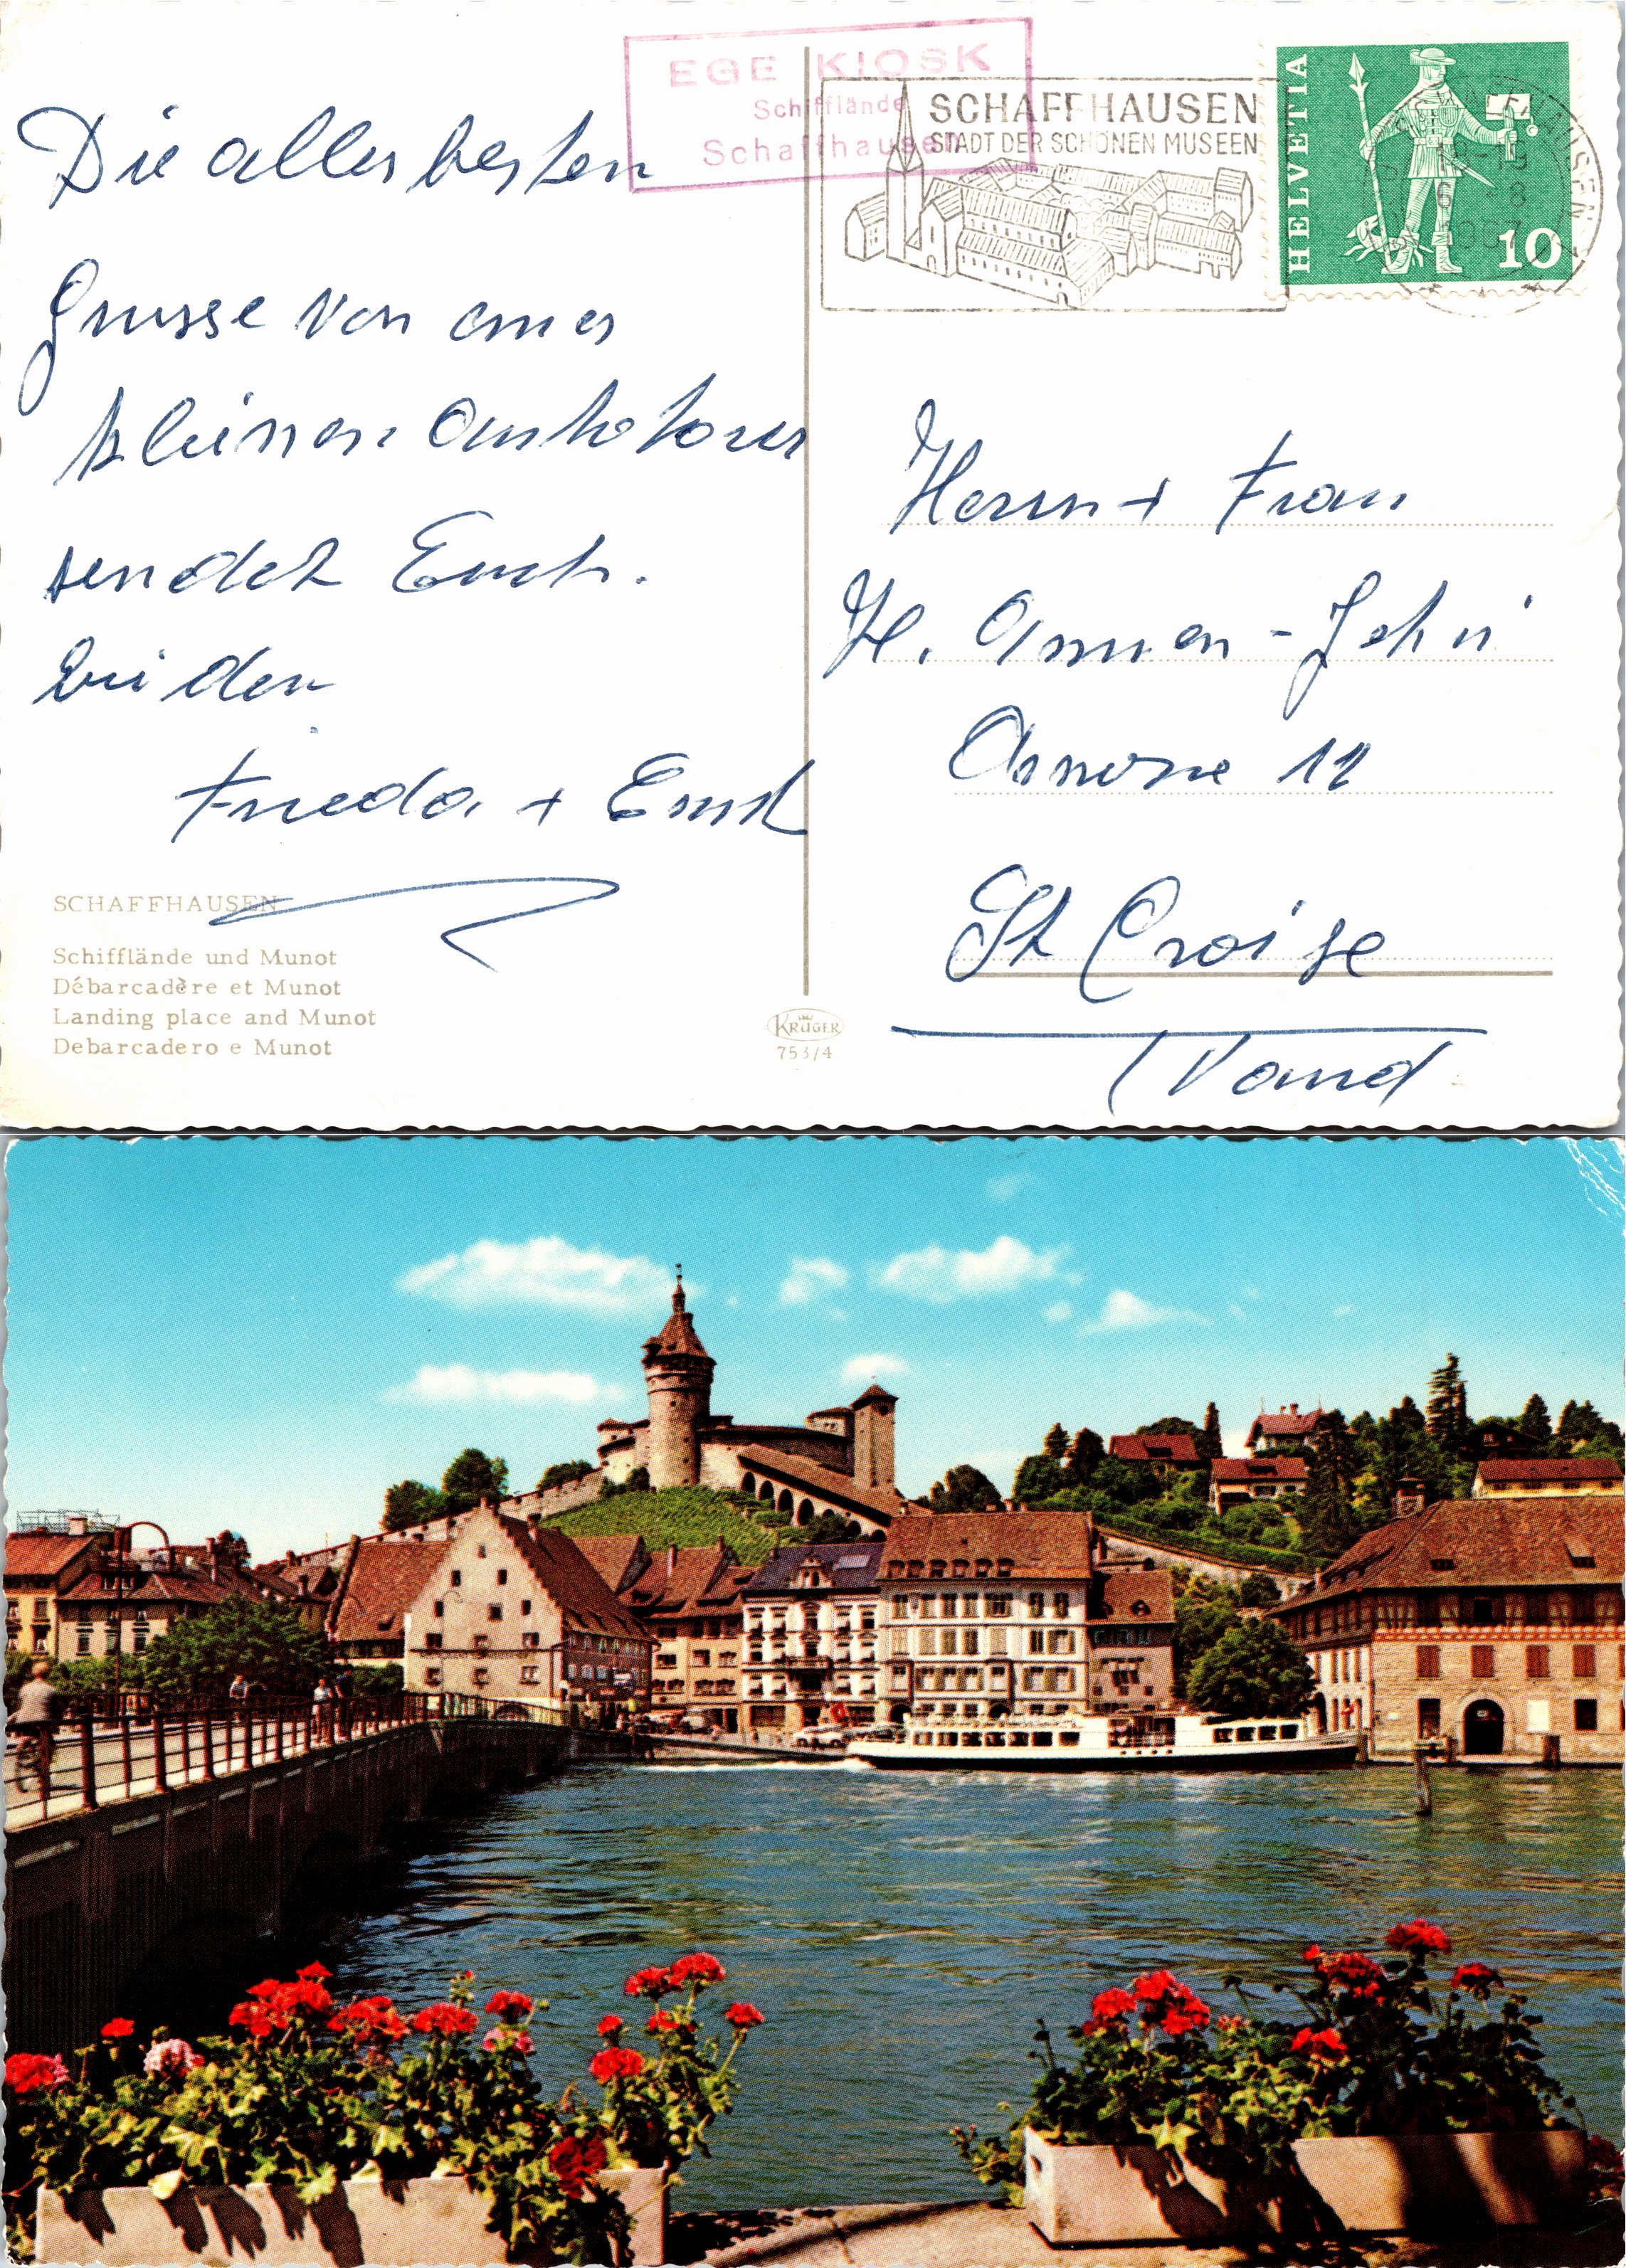 EGE KIOSK
Schifflände
Schaffhausen
SCHAFFHAUSEN
STADT DER SCHÖNEN MUSEEN
HELVETIA
SCHAFFHAUSEN
18-19
6 8
1967
10
Die aller besten
Grüsse von einer
kleinen Autotour
sendet Euch.
beiden
Frieda + Ernst
Herrn + Frau
H. Ammen-Jehni
12
St Croise
Vaud
SCHAFFHAUSEN
Schifflände und Munot
Débarcadère et Munot
Landing place and Munot
Debarcadero e Munot
KRÜGER
753/4